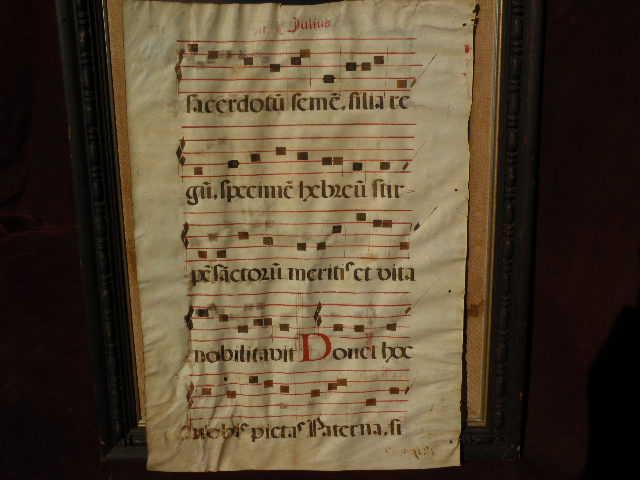 Julius.
sacerdotū semē, filia re
gū, specimē hebreū stir-
pē sāctorū meritis et vita
nobilitavit Donet hoc
nobis pietas Paterna, si